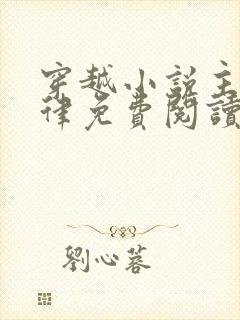 穿越小說主
律免費閱讀
劉心蓉